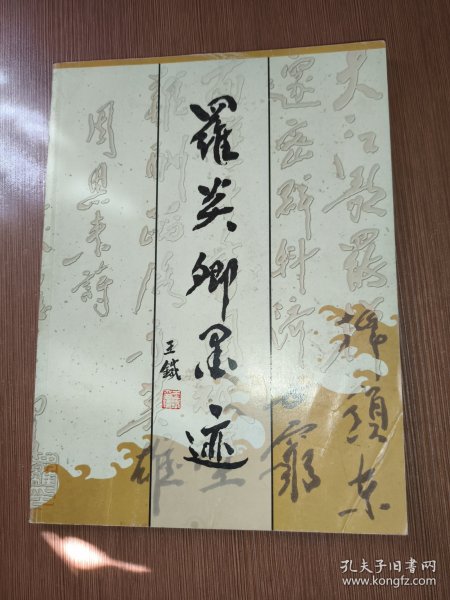 羅炎卿墨迹
王鐵
大江歌罷掉頭東
邃密群科濟世窮
面壁
難酬蹈海亦英雄
周恩来詩
孔夫子旧书网
www.kongfz.com